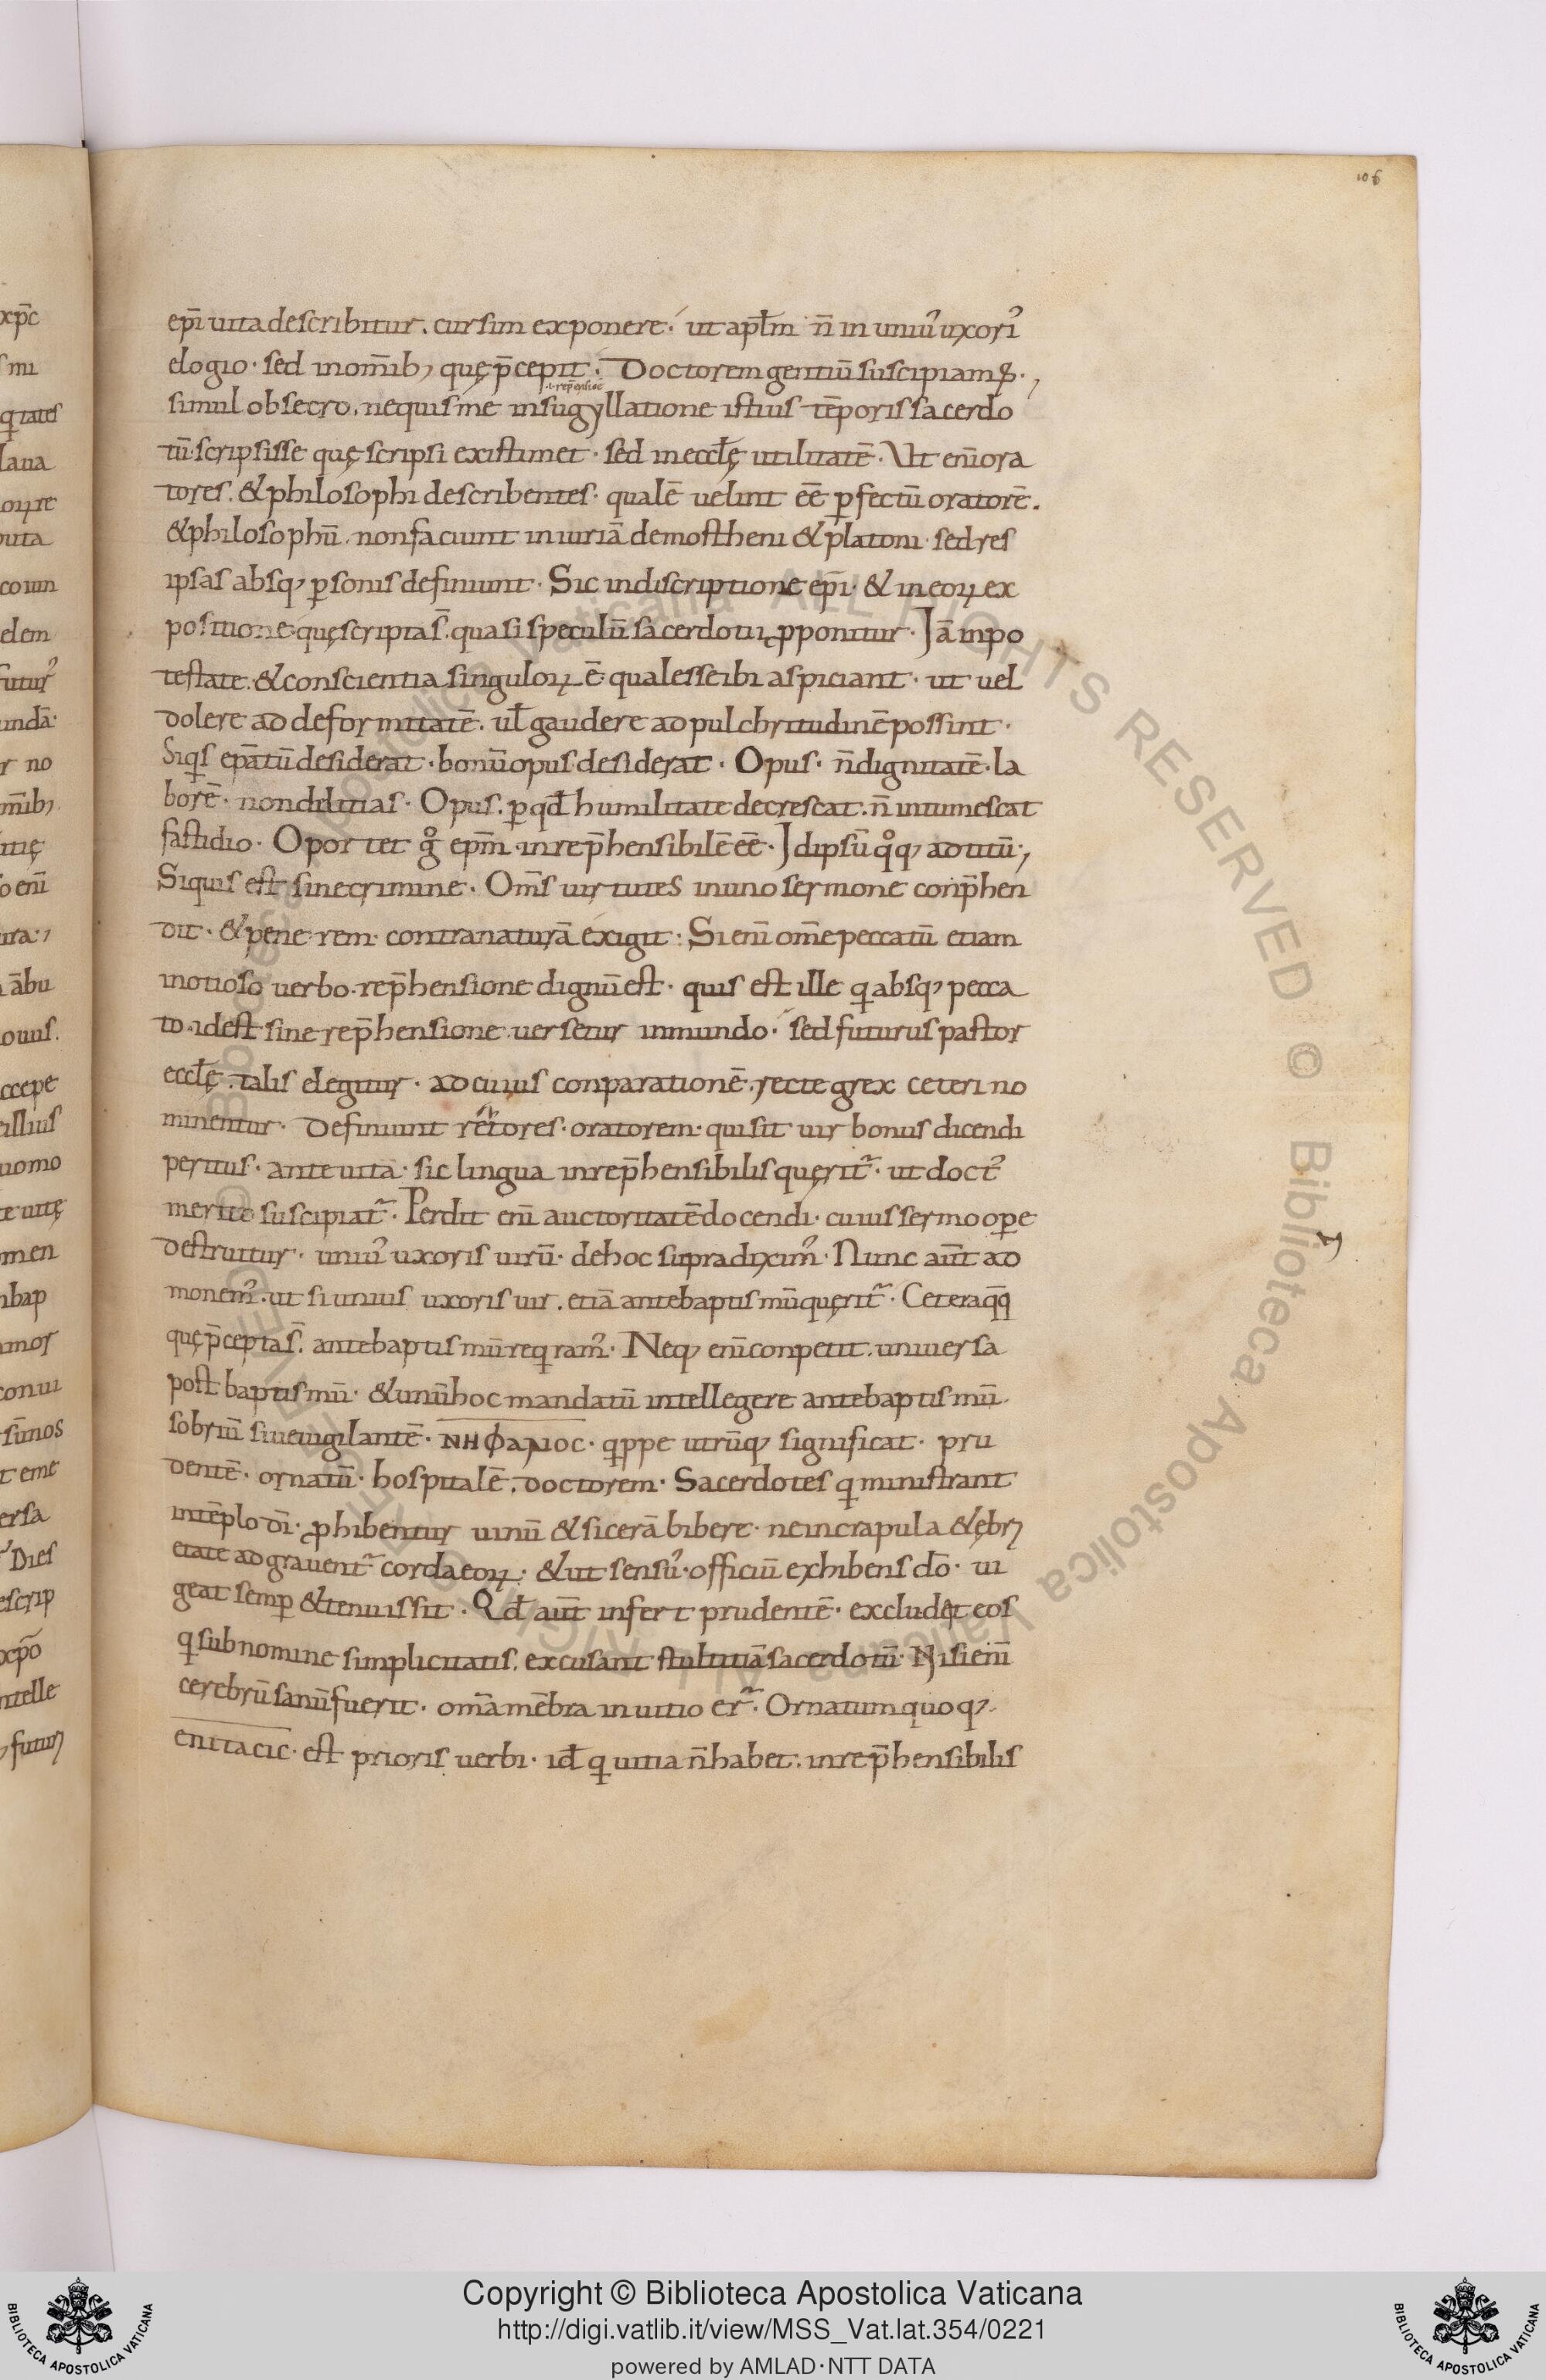 106
ep̄i uita describitur. cursim exponere. ut apłm n̄ in uniuꝰ uxorꝰ
elogio. sed in om̄ib; quę p̄cepit. Doctorem gentiū suscipiamꝰ.
.i. rep̄ensione
simul obsecro. nequis me insugyllatione istius tēporis sacerdo
tū scripsisse quę scripsi existimet. sed in eccłę utilitatē. Ut enī ora
tores. & philosophi describentes. qualē uelint eē ꝑfectū oratorē.
& philosophū. non faciunt iniuriā demostheni & platoni. sed res
ipsas absq; ꝑsonis definiunt. Sic indiscriptione ep̄i. & in eoꝝ ex
positione. quę scripta s̄. quasi speculū sacerdotii ꝓponitur. Jā inpo
testate. & conscientia singuloꝝ ē. quales se ibi aspiciant. ut uel
dolere ad deformitatē. uł gaudere ad pulchritudinē possint.
Siqis ep̄atū desiderat. bonū opus desiderat. Opus. n̄ dignitatē. la
borē. non diuitias. Opus. ꝑ qđ humilitate decrescat. n̄ intumescat
fastidio. Oportet gͦ ep̄m. inrep̄hensibilē eē. Jdipsū qͦq; ad titū;
Siquis est sine crimine. Om̄s uirtutes in uno sermone conp̄hen
dit. & pene rem contra naturā exigit. Si enī om̄e peccatū etiam
in otioso uerbo. rep̄hensione dignū est. quis est ille q absq; pecca
to. idest sine rep̄hensione uersetur in mundo. sed futurus pastor
eccłę. talis elegitur. ad cuius conparationē. recte grex ceteri no
minentur. Definiunt rethores. oratorem. qui sit uir bonus dicendi
peritus. ante uita. sic lingua inrep̄hensibilis quęrit᷑. ut doctꝰ
merito suscipiat᷑. Perdit enī auctoritatē docendi. cuius sermo oꝑe
destruitur. uniuꝰ uxoris uirū. de hoc supra diximꝰ. Nunc aut̄ ad
monemꝰ. ut si unius uxoris uir. etiā ante baptismū quęrit᷑. Cetera qq̄
quę p̄cepta s̄. ante baptismū reqramꝰ. Neq; enī conpetit. uniuersa
post baptismū. & unū hoc mandatū intellegere ante baptismū.
sobriū siue uigilantē. ΝΗΦΑΛΙΟC. qppe utrūq; significat. pru
dentē. ornatū. hospitalē. doctorem. Sacerdotes q ministrant
in tēplo dī. ꝓhibentur uinū & sicerā bibere. ne in crapula & ębri
etate adgrauent᷑ corda eoꝝ. & ut sensuꝰ. officiū exhibens dō. ui
geat semꝑ & tenuis sit. Qđ aut̄ infert prudentē. excludet eos
q sub nomine simplicitatis. excusant stultitiā sacerdotū. Nisi enī
cerebrū sanū fuerit. om̄a mēbra in uitio er᷑. Ornatum quoq;.
enitacic. est prioris uerbi. id q uitia n̄ habet. inrep̄hensibilis
Copyright © Biblioteca Apostolica Vaticana
http://digi.vatlib.it/view/MSS_Vat.lat.354/0221
powered by AMLAD·NTT DATA